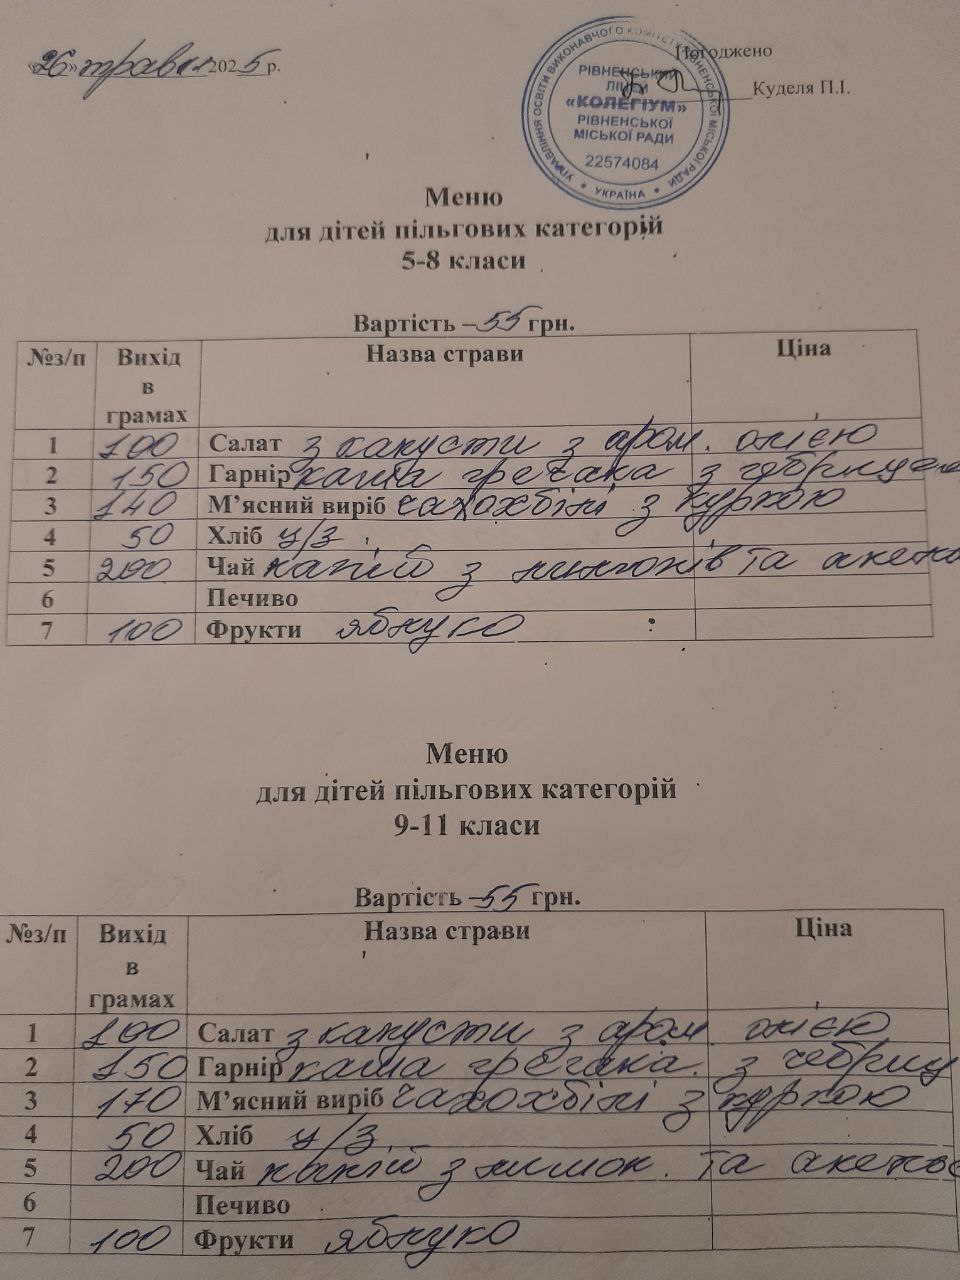 «26» травня 2025 р.
Погоджено
Куделя П.І.
УПРАВЛІННЯ ОСВІТИ ВИКОНАВЧОГО КОМІТЕТУ РІВНЕНСЬКОЇ МІСЬКОЇ РАДИ
РІВНЕНСЬКИЙ
ЛІЦЕЙ
«КОЛЕГІУМ»
РІВНЕНСЬКОЇ
МІСЬКОЇ РАДИ
22574084
* УКРАЇНА *
Меню
для дітей пільгових категорій
5-8 класи
Вартість – 55 грн.
№з/п Вихід в грамах Назва страви Ціна
1 100 Салат з капусти з аром. олією
2 150 Гарнір каша гречана з чебрецем
3 140 М’ясний виріб чахохбілі з куркою
4 50 Хліб ц/з
5 200 Чай напій з та
6 Печиво
7 100 Фрукти яблуко
Меню
для дітей пільгових категорій
9-11 класи
Вартість – 55 грн.
№з/п Вихід в грамах Назва страви Ціна
1 100 Салат з капусти з аром. олією
2 150 Гарнір каша гречана. з
3 170 М’ясний виріб чахохбілі з куркою
4 50 Хліб ц/з
5 200 Чай напій з лимон. та
6 Печиво
7 100 Фрукти яблуко